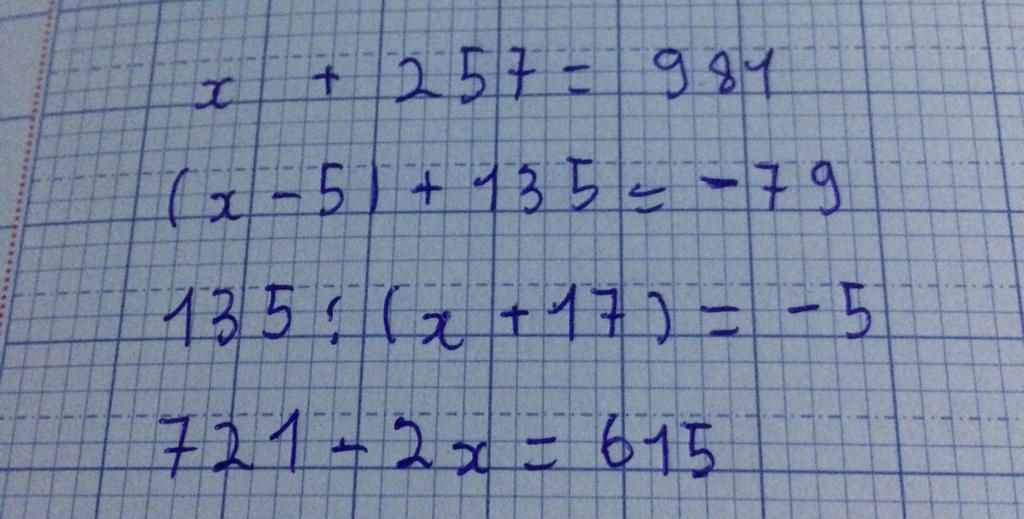 x + 257 = 981
(x - 5) + 135 = - 79
135 : (x + 17) = - 5
721 - 2x = 615